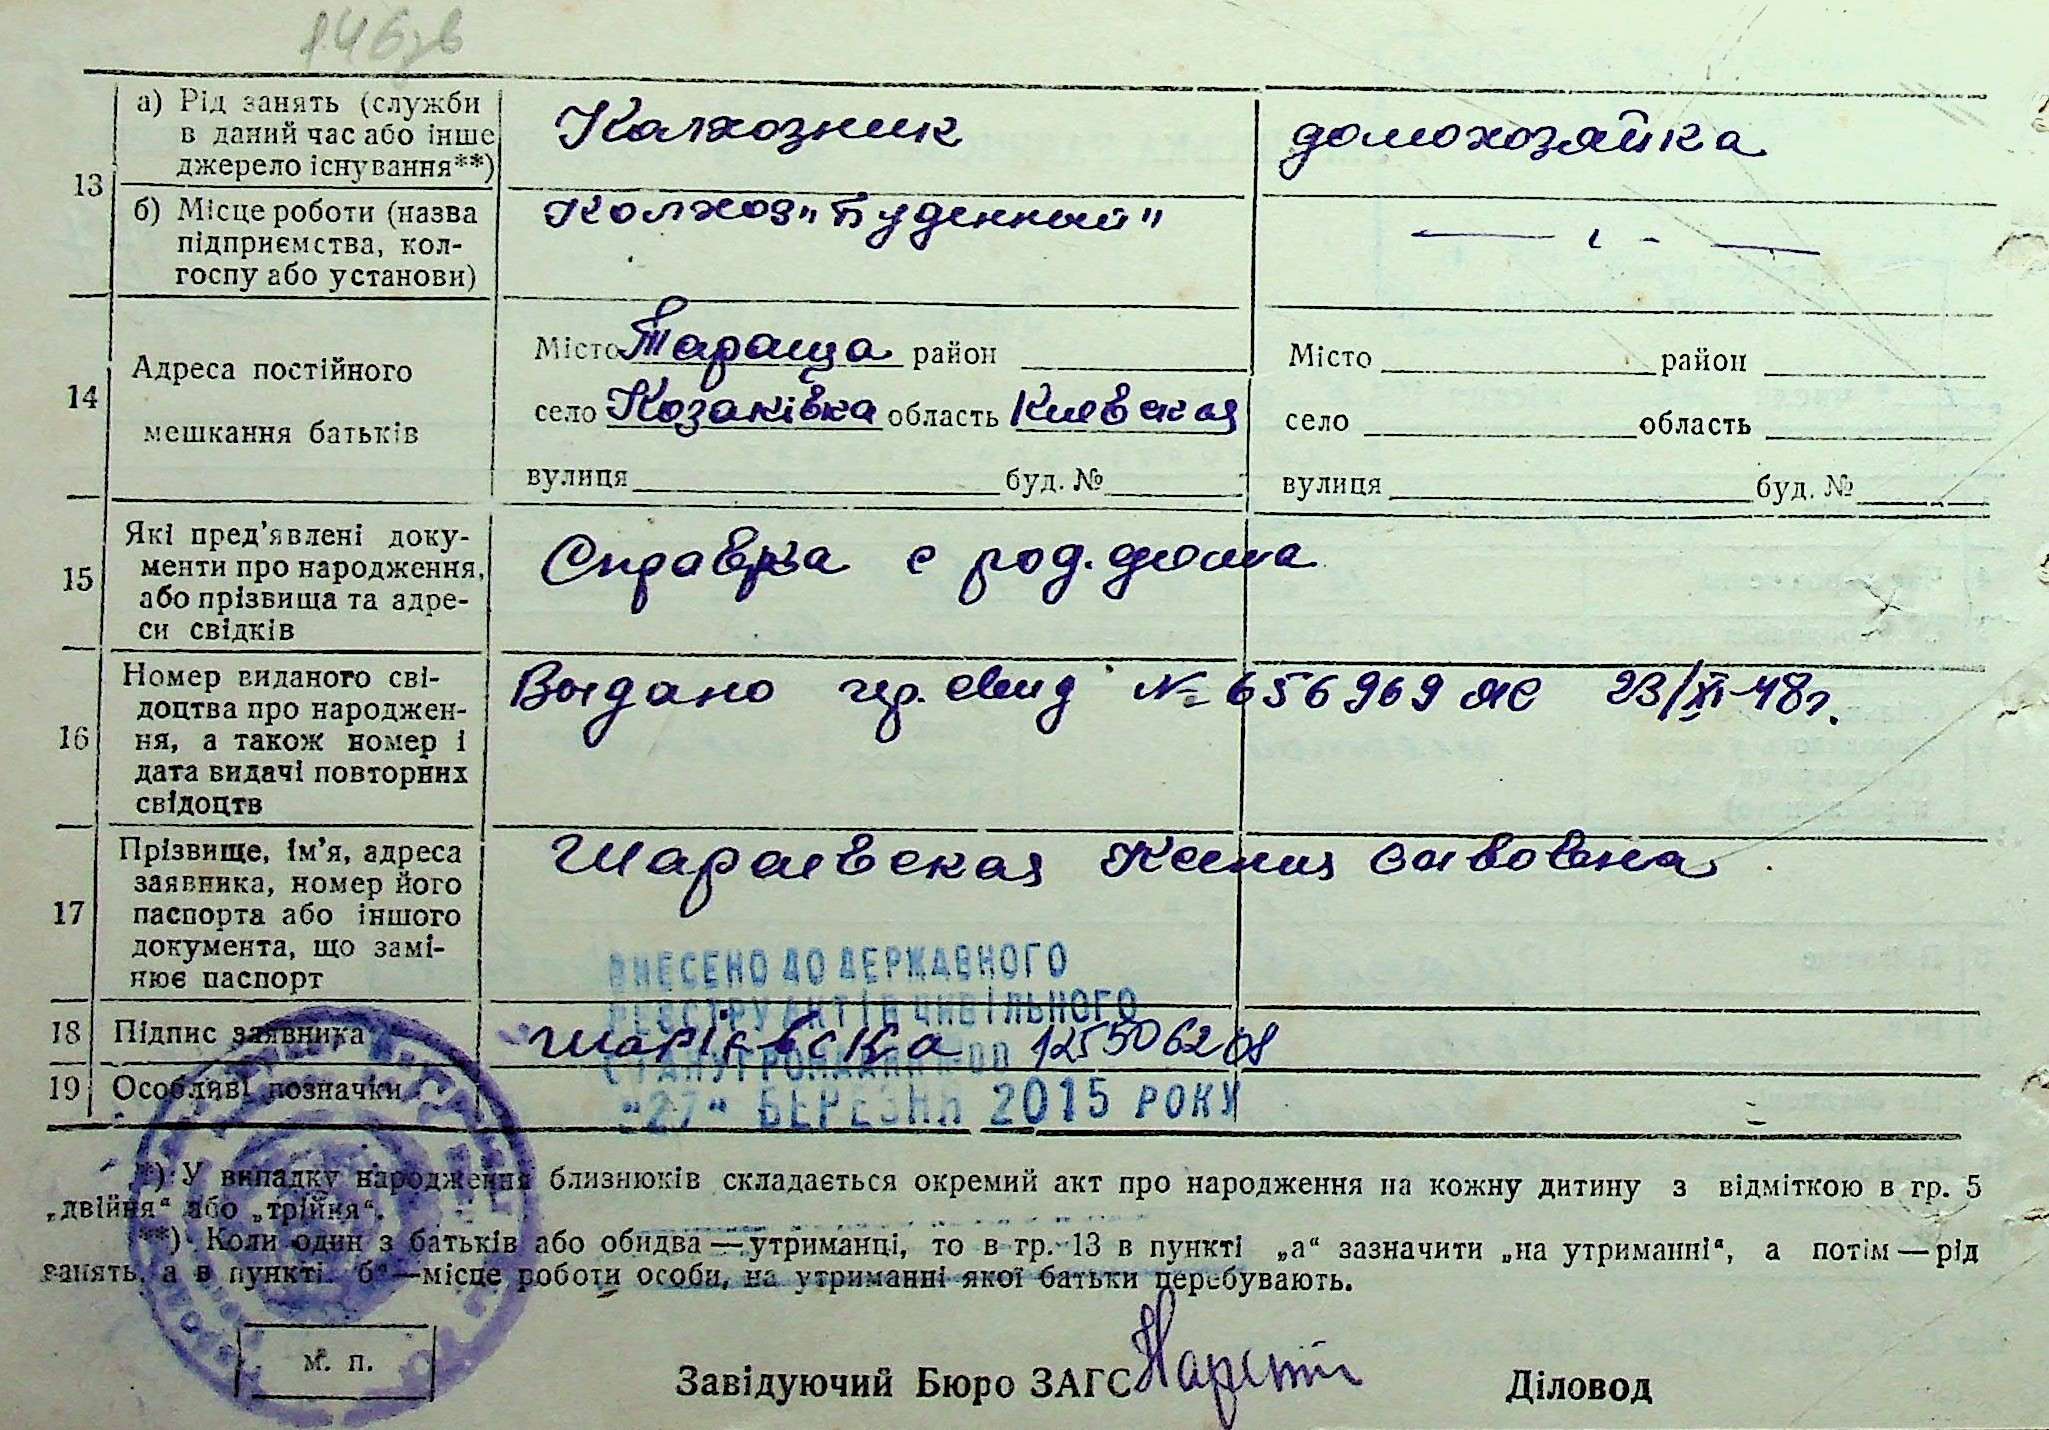 146зв
13
а) Рід занять (служби
в даний час або інше
джерело існування**)
Колхозник
домохозяйка
б) Місце роботи (назва
підприємства, кол-
госпу або установи)
Колхоз „Буденный"
14
Адреса постійного
мешкання батьків
Місто Тараща район
село Козаківка область Киевская
вулиця буд. №
Місто район
село область
вулиця буд. №
15
Які пред'явлені доку-
менти про народження,
або прізвища та адре-
си свідків
Справка с род. дома
16
Номер виданого сві-
доцтва про народжен-
ня, а також номер і
дата видачі повторних
свідоцтв
Выдано свид № 656969 23/XI-48г.
17
Прізвище, ім'я, адреса
заявника, номер його
паспорта або іншого
документа, що замі-
нює паспорт
Шараевская Ксения
ВНЕСЕНО ДО ДЕРЖАВНОГО
РЕЄСТРУ АКТІВ ЦИВІЛЬНОГО
СТАНУ ГРОМАДЯН
"27" БЕРЕЗНЯ 2015 РОКУ
18 Підпис заявника
12550620
19 Особливі позначки
*) У випадку народження близнюків складається окремий акт про народження на кожну дитину з відміткою в гр. 5
„двійня" або „трійня".
**) Коли один з батьків або обидва—утриманці, то в гр. 13 в пункті „а" зазначити „на утриманні", а потім—рід
занять, а в пункті б"—місце роботи особи, на утриманні якої батьки перебувають.
м. п.
Завідуючий Бюро ЗАГС
Діловод